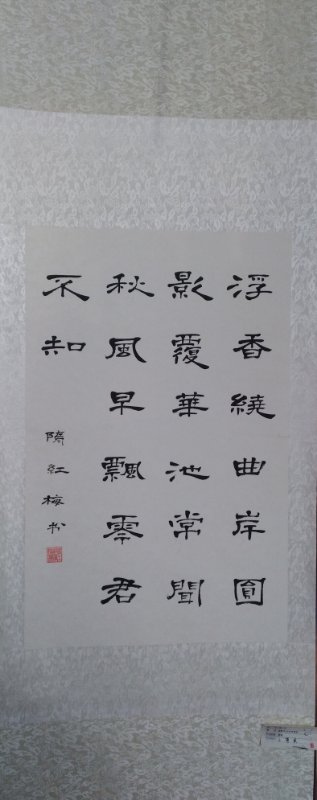 浮香繞曲岸圓
影覆華池常聞
秋風早飄零君
不知
隋紅梅书